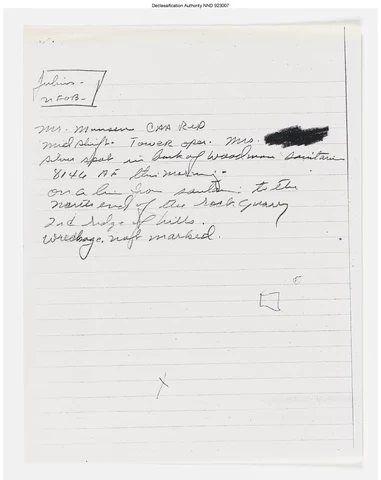 Declassification Authority NND 923007
Julius -
Mr. Munsen CAA Rep
mid shift. Tower oper. Mrs.
silver spot in back of Woodman
8046 AF this morning.
on a line from to the
north end of the rock quarry
2nd ridge of hills.
wreckage not marked.